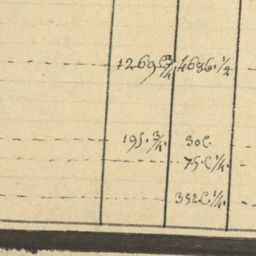 1269 3/4 4686 1/2
195 3/4 30 C.
75 C 1/4
352 C 1/4